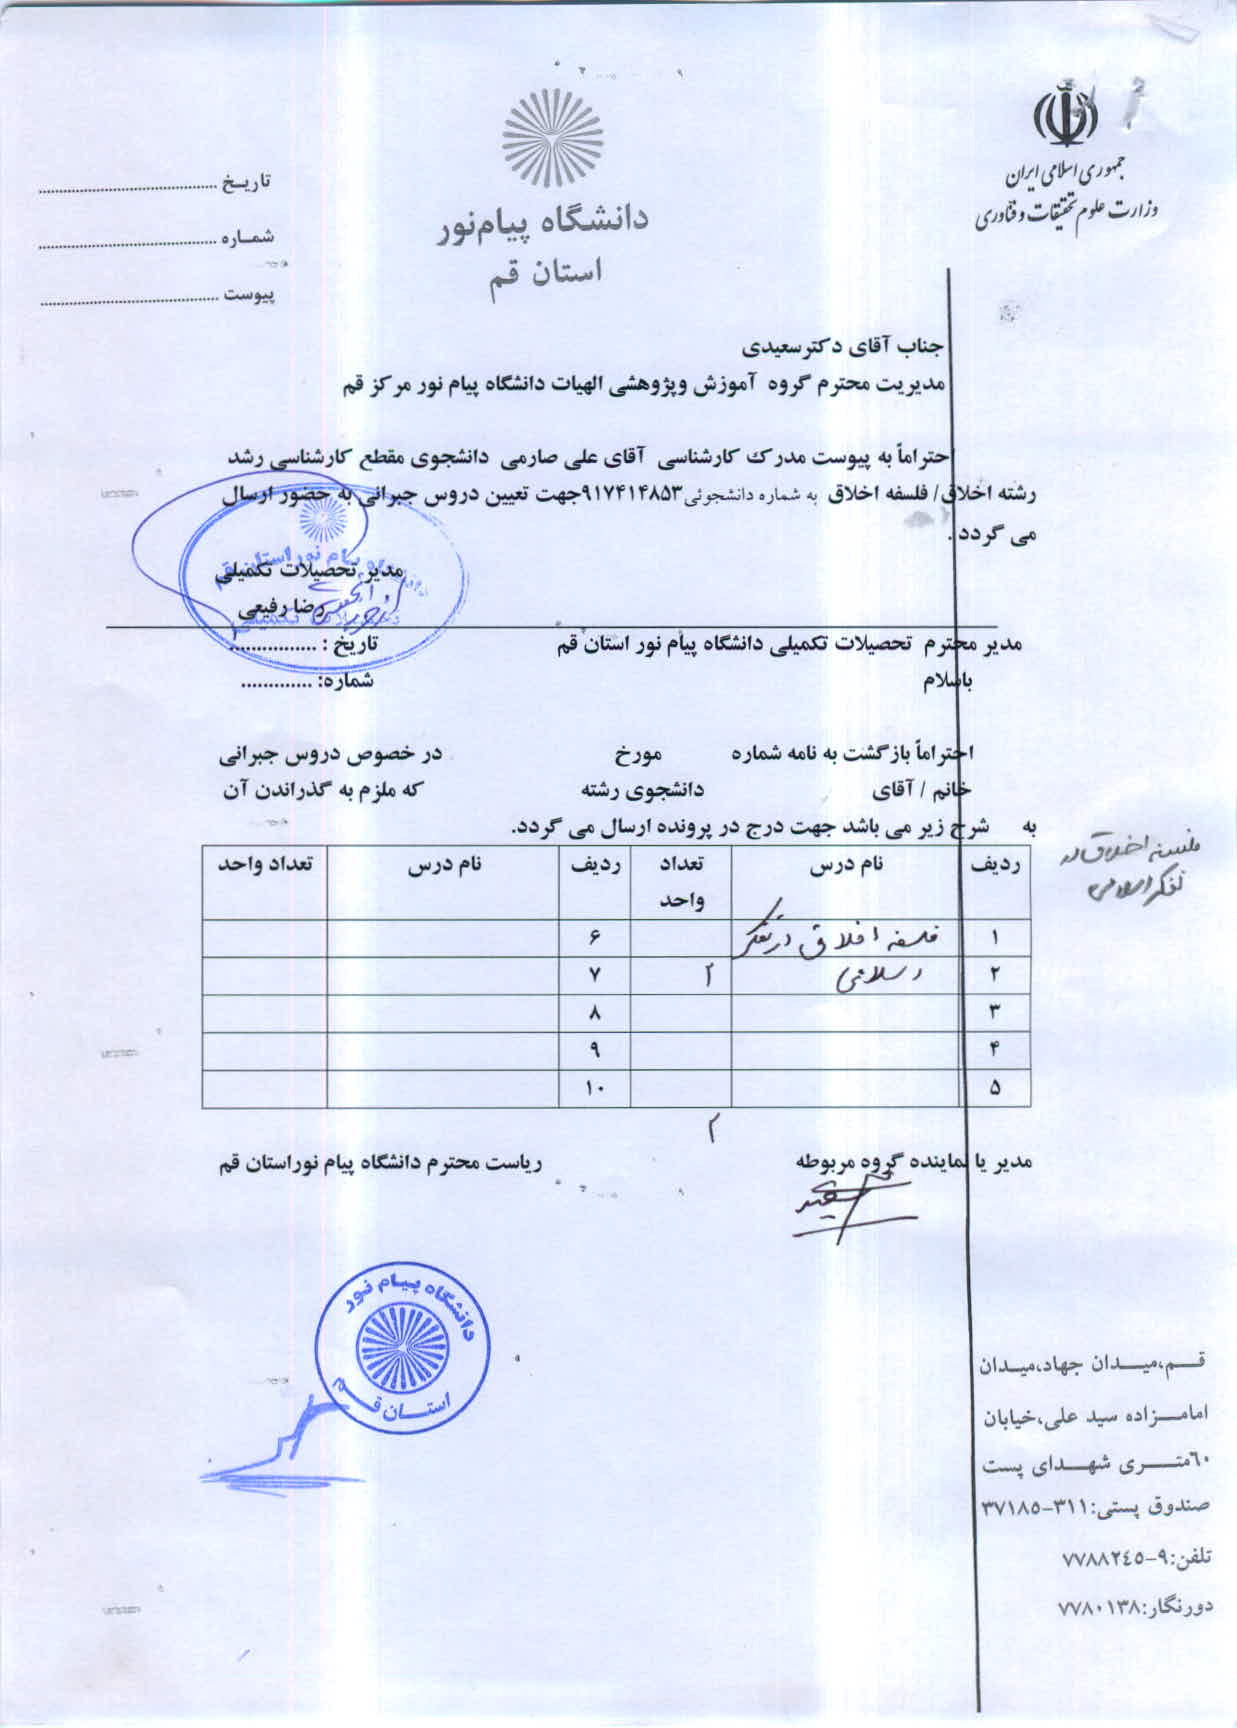 جمهوری اسلامی ایران
وزارت علوم تحقیقات و فناوری
دانشگاه پیام‌نور
استان قم
تاریـخ ........................................
شمـاره ........................................
پیوست ........................................
جناب آقای دکترسعیدی
مدیریت محترم گروه آموزش وپژوهشی الهیات دانشگاه پیام نور مرکز قم
احتراماً به پیوست مدرک کارشناسی آقای علی صارمی دانشجوی مقطع کارشناسی رشد
رشته اخلاق/ فلسفه اخلاق به شماره دانشجوئی ۹۱۷۴۱۴۸۵۳جهت تعیین دروس جبرانی به حضور ارسال
می گردد .
مدیر تحصیلات تکمیلی
رضا رفیعی
مدیر محترم تحصیلات تکمیلی دانشگاه پیام نور استان قم تاریخ : ................
باسلام شماره: .............
احتراماً بازگشت به نامه شماره مورخ در خصوص دروس جبرانی
خانم / آقای دانشجوی رشته که ملزم به گذراندن آن
به شرح زیر می باشد جهت درج در پرونده ارسال می گردد.
فلسفه اخلاق در
تفکر اسلامی
ردیف نام درس تعداد واحد ردیف نام درس تعداد واحد
۱ فلسفه اخلاق در تفکر ۶
۲ اسلامی ۲ ۷
۳ ۸
۴ ۹
۵ ۱۰
۲
مدیر یا نماینده گروه مربوطه ریاست محترم دانشگاه پیام نوراستان قم
دانشگاه پیام نور
استان قم
قـم،میـدان جهاد،میـدان
امامـزاده سید علی،خیابان
٦٠متـری شهـدای پست
صندوق پستی:۳۱۱-۳۷۱۸۵
تلفن:۹-۷۷۸۸۲٤۵
دورنگار:۷۷۸۰۱۳۸